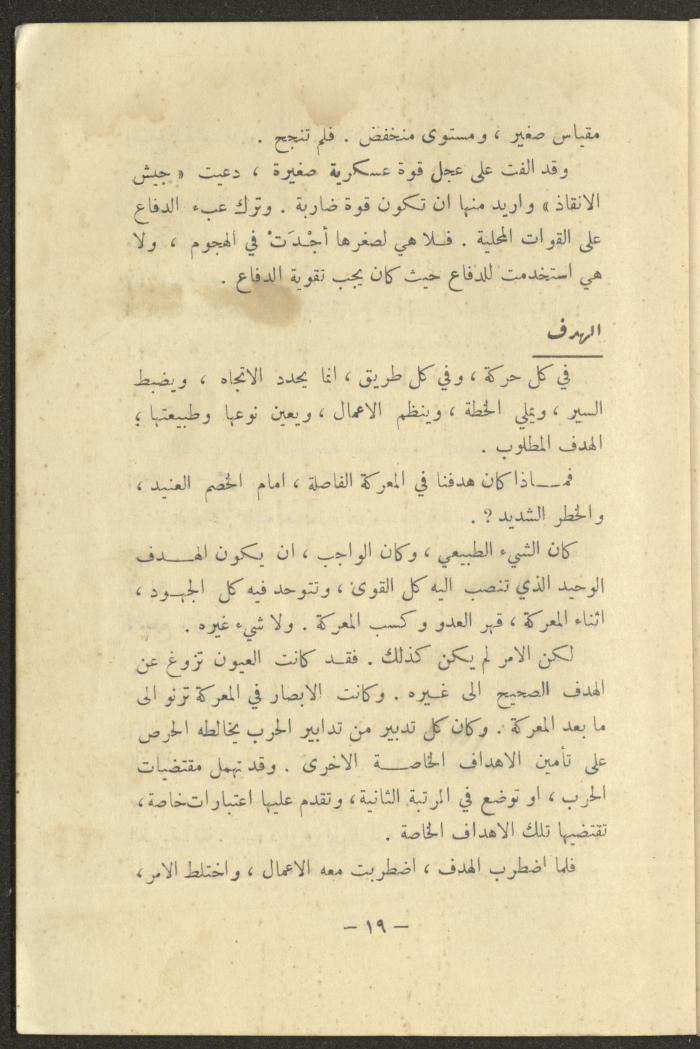 مقياس صغير ، ومستوى منخفض . فلم تنجح .
وقد الفت على عجل قوة عسكرية صغيرة ، دعيت « جيش
الانقاذ » واريد منها ان تكون قوة ضاربة . وترك عبء الدفاع
على القوات المحلية . فلا هي لصغرها أجْدَتْ في الهجوم ، ولا
هي استخدمت للدفاع حيث كان يجب تقوية الدفاع .
الهدف
في كل حركة ، وفي كل طريق ، انما يحدد الاتجاه ، ويضبط
السير ، ويملي الخطة ، وينظم الاعمال ، ويعين نوعها وطبيعتها ؛
الهدف المطلوب .
فمـاذا كان هدفنا في المعركة الفاصلة ، امام الخصم العنيد ،
والخطر الشديد ? .
كان الشيء الطبيعي ، وكان الواجب ، ان يكون الهـدف
الوحيد الذي تنصب اليه كل القوى ، وتتوحد فيه كل الجهود ،
اثناء المعركة ، قهر العدو وكسب المعركة . ولا شيء غيره .
لكن الامر لم يكن كذلك . فقد كانت العيون تزوغ عن
الهدف الصحيح الى غيره . وكانت الابصار في المعركة ترنو الى
ما بعد المعركة . وكان كل تدبير من تدابير الحرب يخالطه الحرص
على تأمين الاهداف الخاصـة الاخرى . وقد تهمل مقتضيات
الحرب ، او توضع في المرتبة الثانية ، وتقدم عليها اعتبارات خاصة ،
تقتضيها تلك الاهداف الخاصة .
فلما اضطرب الهدف ، اضطربت معه الاعمال ، واختلط الامر ،
— ١٩ —